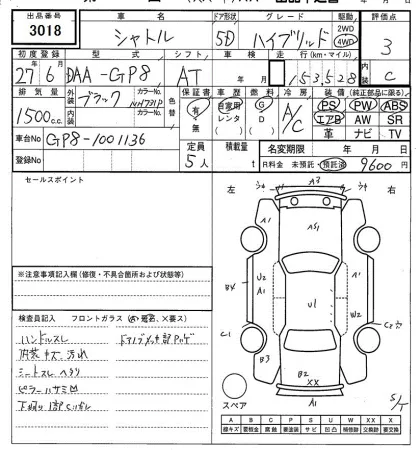 出品番号 車名 ドア形状 グレード 駆動 評価点
3018 シャトル 5D ハイブリッド 2WD 4WD 3
初度登録 型式 シフト 車検 走行(km・マイル) 内装
27年6月 DAA-GP8 AT 年 月 153528 C
排気量 外装 カラーNo. 色替 保証書 車歴 燃料 冷房 装備(純正部品に限る)
1500c.c. ブラック NH731P 有 自家用 G A/C PS PW ABS
内装 カラーNo. 無 レンタ D エアB AW SR
( ) ( ) 革 ナビ TV
車台No GP8-1001136 定員 積載量 名変期限 年 月 日
登録No 5人 t R料金 未預託・預託済 9600円
セールスポイント
左 右
※注意事項記入欄(修復・不具合箇所および状態等)
検査員記入 フロントガラス
ハンドルスレ
内装キズ、汚れ
シートスレ ヘタリ
A3
A1
A51
A1
U2
A1
B4
U1
W2
C1
B3
B2
XX
A1
S/T
スペア
A B C P S U W XX X
線キズ 要板金 腐蝕 要塗装 サビ 凹凸 補修跡 交換跡 要交換